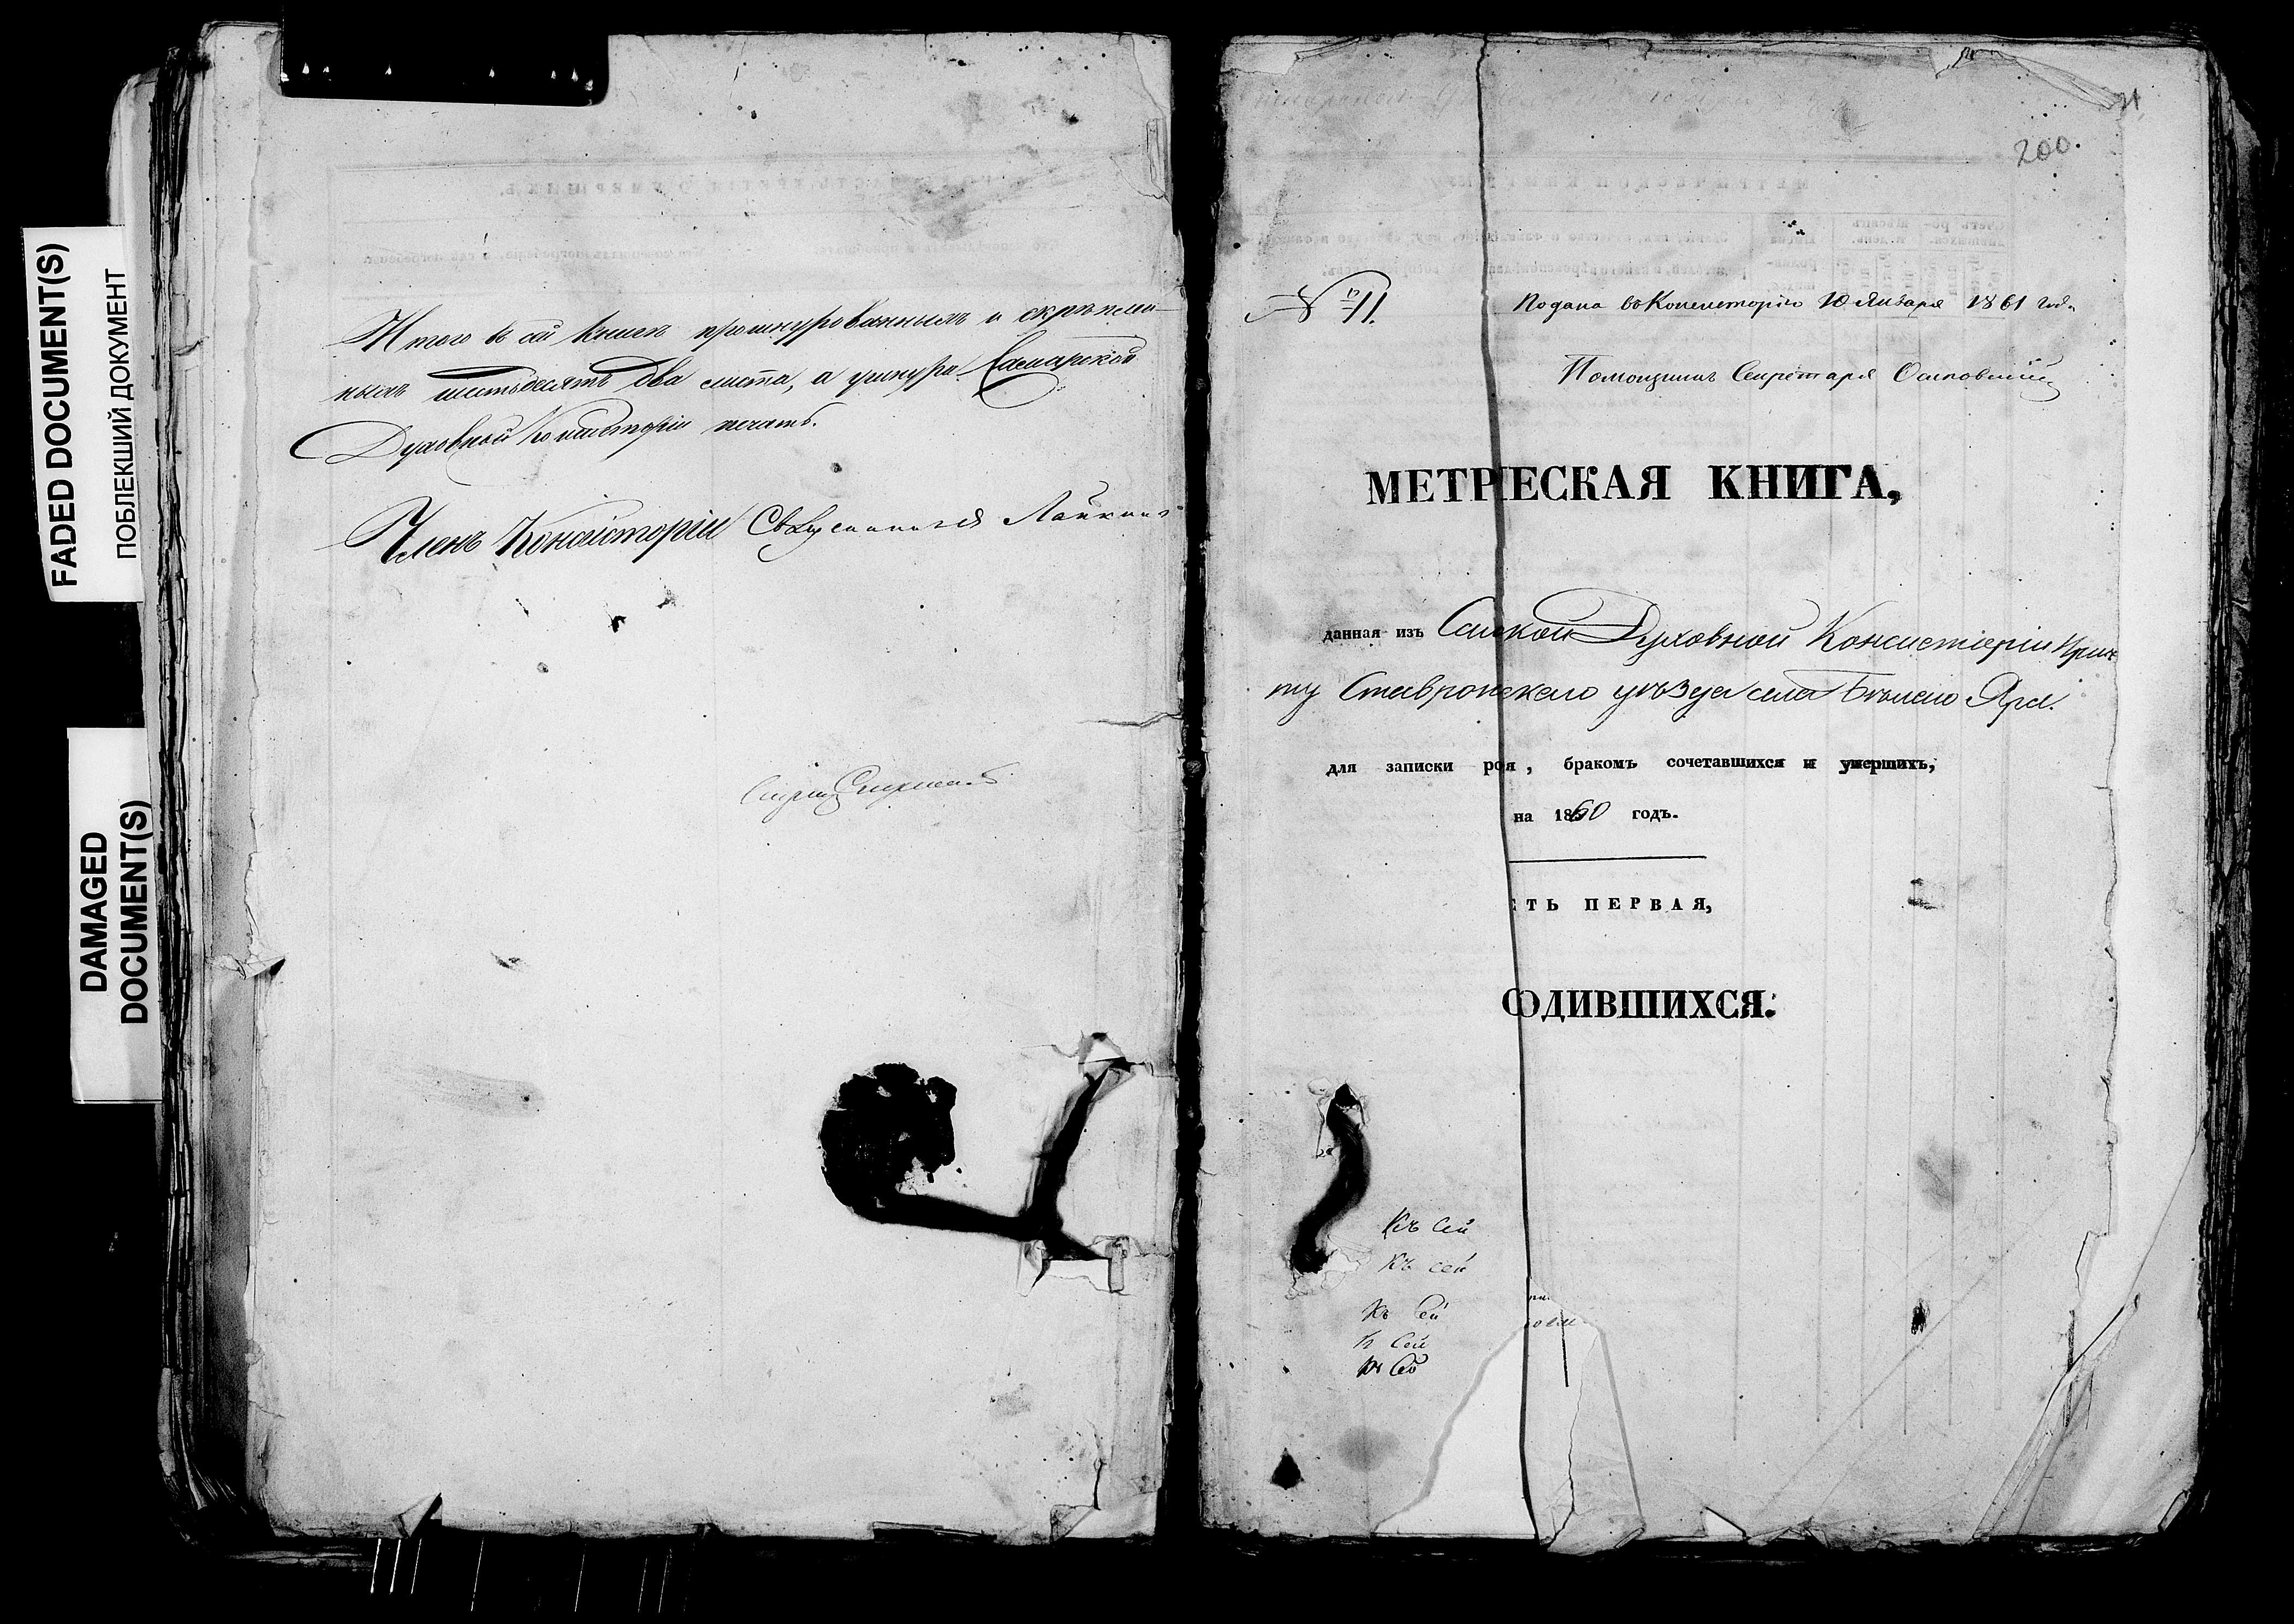 FADED DOCUMENT(S)
ПОБЛЕКШИЙ ДОКУМЕНТ
DAMAGED
DOCUMENT(S)
Итого въ сей книгѣ прошнурованныхъ и скрѣплен-
ныхъ шестьдесятъ два листа, а у шнура Самарской
Духовной Консисторіи печать.
Членъ Консисторіи Священникъ
200.
№ 11.
Подана въ Консисторію 10 Января 1861 года
Помощникъ Секретаря
МЕТРЕСКАЯ КНИГА,
данная изъ Самской Духовной Консисторіи прич
ту Ставропскаго уѣзда села Бѣлаго Яра.
для записки роя, бракомъ сочетавшихся и умершихъ,
на 1860 годъ.
ТЬ ПЕРВАЯ,
ОДИВШИХСЯ.
Къ сей
Къ сей
Къ сей
К сей
Къ сей